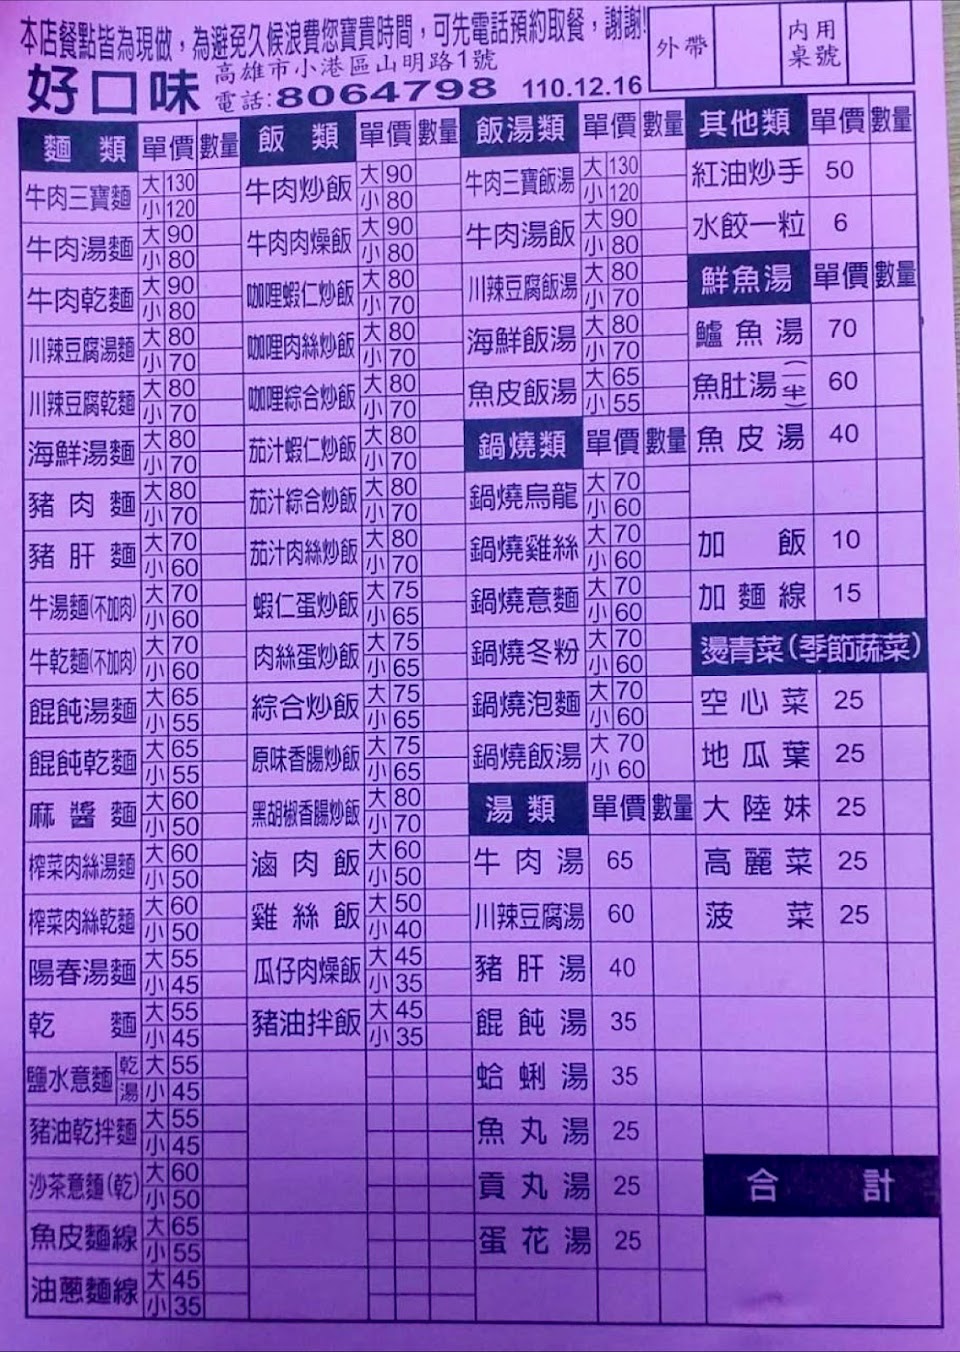 本店餐點皆為現做，為避免久候浪費您寶貴時間，可先電話預約取餐，謝謝!
好口味
高雄市小港區山明路1號
電話:8064798 110.12.16
外帶
內用桌號
麵類 單價 數量
牛肉三寶麵 大 130 小 120
牛肉湯麵 大 90 小 80
牛肉乾麵 大 90 小 80
川辣豆腐湯麵 大 80 小 70
川辣豆腐乾麵 大 80 小 70
海鮮湯麵 大 80 小 70
豬肉麵 大 80 小 70
豬肝麵 大 70 小 60
牛湯麵(不加肉) 大 70 小 60
牛乾麵(不加肉) 大 70 小 60
餛飩湯麵 大 65 小 55
餛飩乾麵 大 65 小 55
麻醬麵 大 60 小 50
榨菜肉絲湯麵 大 60 小 50
榨菜肉絲乾麵 大 60 小 50
陽春湯麵 大 55 小 45
乾麵 大 55 小 45
鹽水意麵 乾 湯 大 55 小 45
豬油乾拌麵 大 55 小 45
沙茶意麵(乾) 大 60 小 50
魚皮麵線 大 65 小 55
油蔥麵線 大 45 小 35
飯類 單價 數量
牛肉炒飯 大 90 小 80
牛肉肉燥飯 大 90 小 80
咖哩蝦仁炒飯 大 80 小 70
咖哩肉絲炒飯 大 80 小 70
咖哩綜合炒飯 大 80 小 70
茄汁蝦仁炒飯 大 80 小 70
茄汁綜合炒飯 大 80 小 70
茄汁肉絲炒飯 大 80 小 70
蝦仁蛋炒飯 大 75 小 65
肉絲蛋炒飯 大 75 小 65
綜合炒飯 大 75 小 65
原味香腸炒飯 大 75 小 65
黑胡椒香腸炒飯 大 80 小 70
滷肉飯 大 60 小 50
雞絲飯 大 50 小 40
瓜仔肉燥飯 大 45 小 35
豬油拌飯 大 45 小 35
飯湯類 單價 數量
牛肉三寶飯湯 大 130 小 120
牛肉湯飯 大 90 小 80
川辣豆腐飯湯 大 80 小 70
海鮮飯湯 大 80 小 70
魚皮飯湯 大 65 小 55
鍋燒類 單價 數量
鍋燒烏龍 大 70 小 60
鍋燒雞絲 大 70 小 60
鍋燒意麵 大 70 小 60
鍋燒冬粉 大 70 小 60
鍋燒泡麵 大 70 小 60
鍋燒飯湯 大 70 小 60
湯類 單價 數量
牛肉湯 65
川辣豆腐湯 60
豬肝湯 40
餛飩湯 35
蛤蜊湯 35
魚丸湯 25
貢丸湯 25
蛋花湯 25
其他類 單價 數量
紅油炒手 50
水餃一粒 6
鮮魚湯 單價 數量
鱸魚湯 70
魚肚湯(一半) 60
魚皮湯 40
加飯 10
加麵線 15
燙青菜(季節蔬菜)
空心菜 25
地瓜葉 25
大陸妹 25
高麗菜 25
菠菜 25
合計